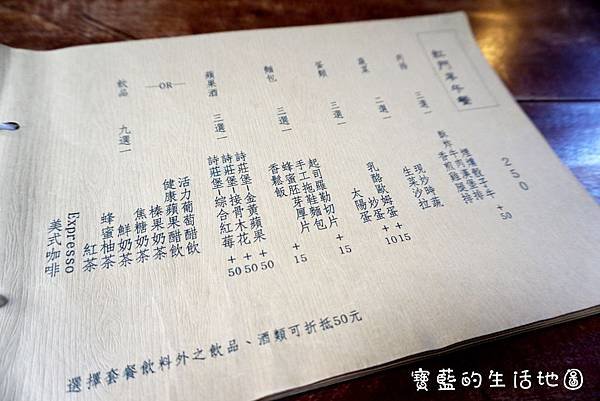 紅門早午餐
250
肉排 三選一
煙燻骰子牛 +50
香煎雞腿排
蔬菜 二選一
現炒時蔬
生菜沙拉
蛋類 三選一
乳酪歐姆蛋 +15
炒蛋 +10
太陽蛋
麵包 三選一
起司羅勒切片
手工拖鞋麵包 +15
蜂蜜胚芽厚片
香鬆飯 +15
蘋果酒 三選一
詩莊堡-金黃蘋果 +50
詩莊堡-接骨木花 +50
詩莊堡-綜合紅莓 +50
—OR—
飲品 九選一
活力葡萄醋飲
健康蘋果醋飲
榛果奶茶
焦糖奶茶
鮮奶茶
蜂蜜柚茶
紅茶
Expresso
美式咖啡
選擇套餐飲料外之飲品、酒類可折抵50元
寶藍的生活地圖